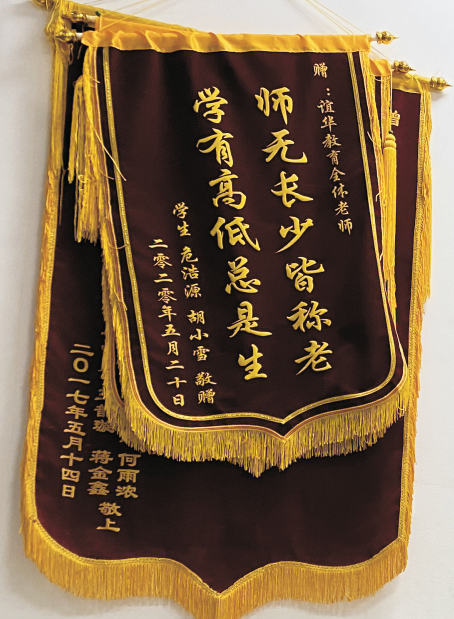 赠：谊华教育全体老师
师无长少皆称老
学有高低总是生
学生 危浩源 胡小雪 敬赠
二零二零年五月二十日
何雨浓
蒋金鑫 敬上
二〇一七年五月十四日